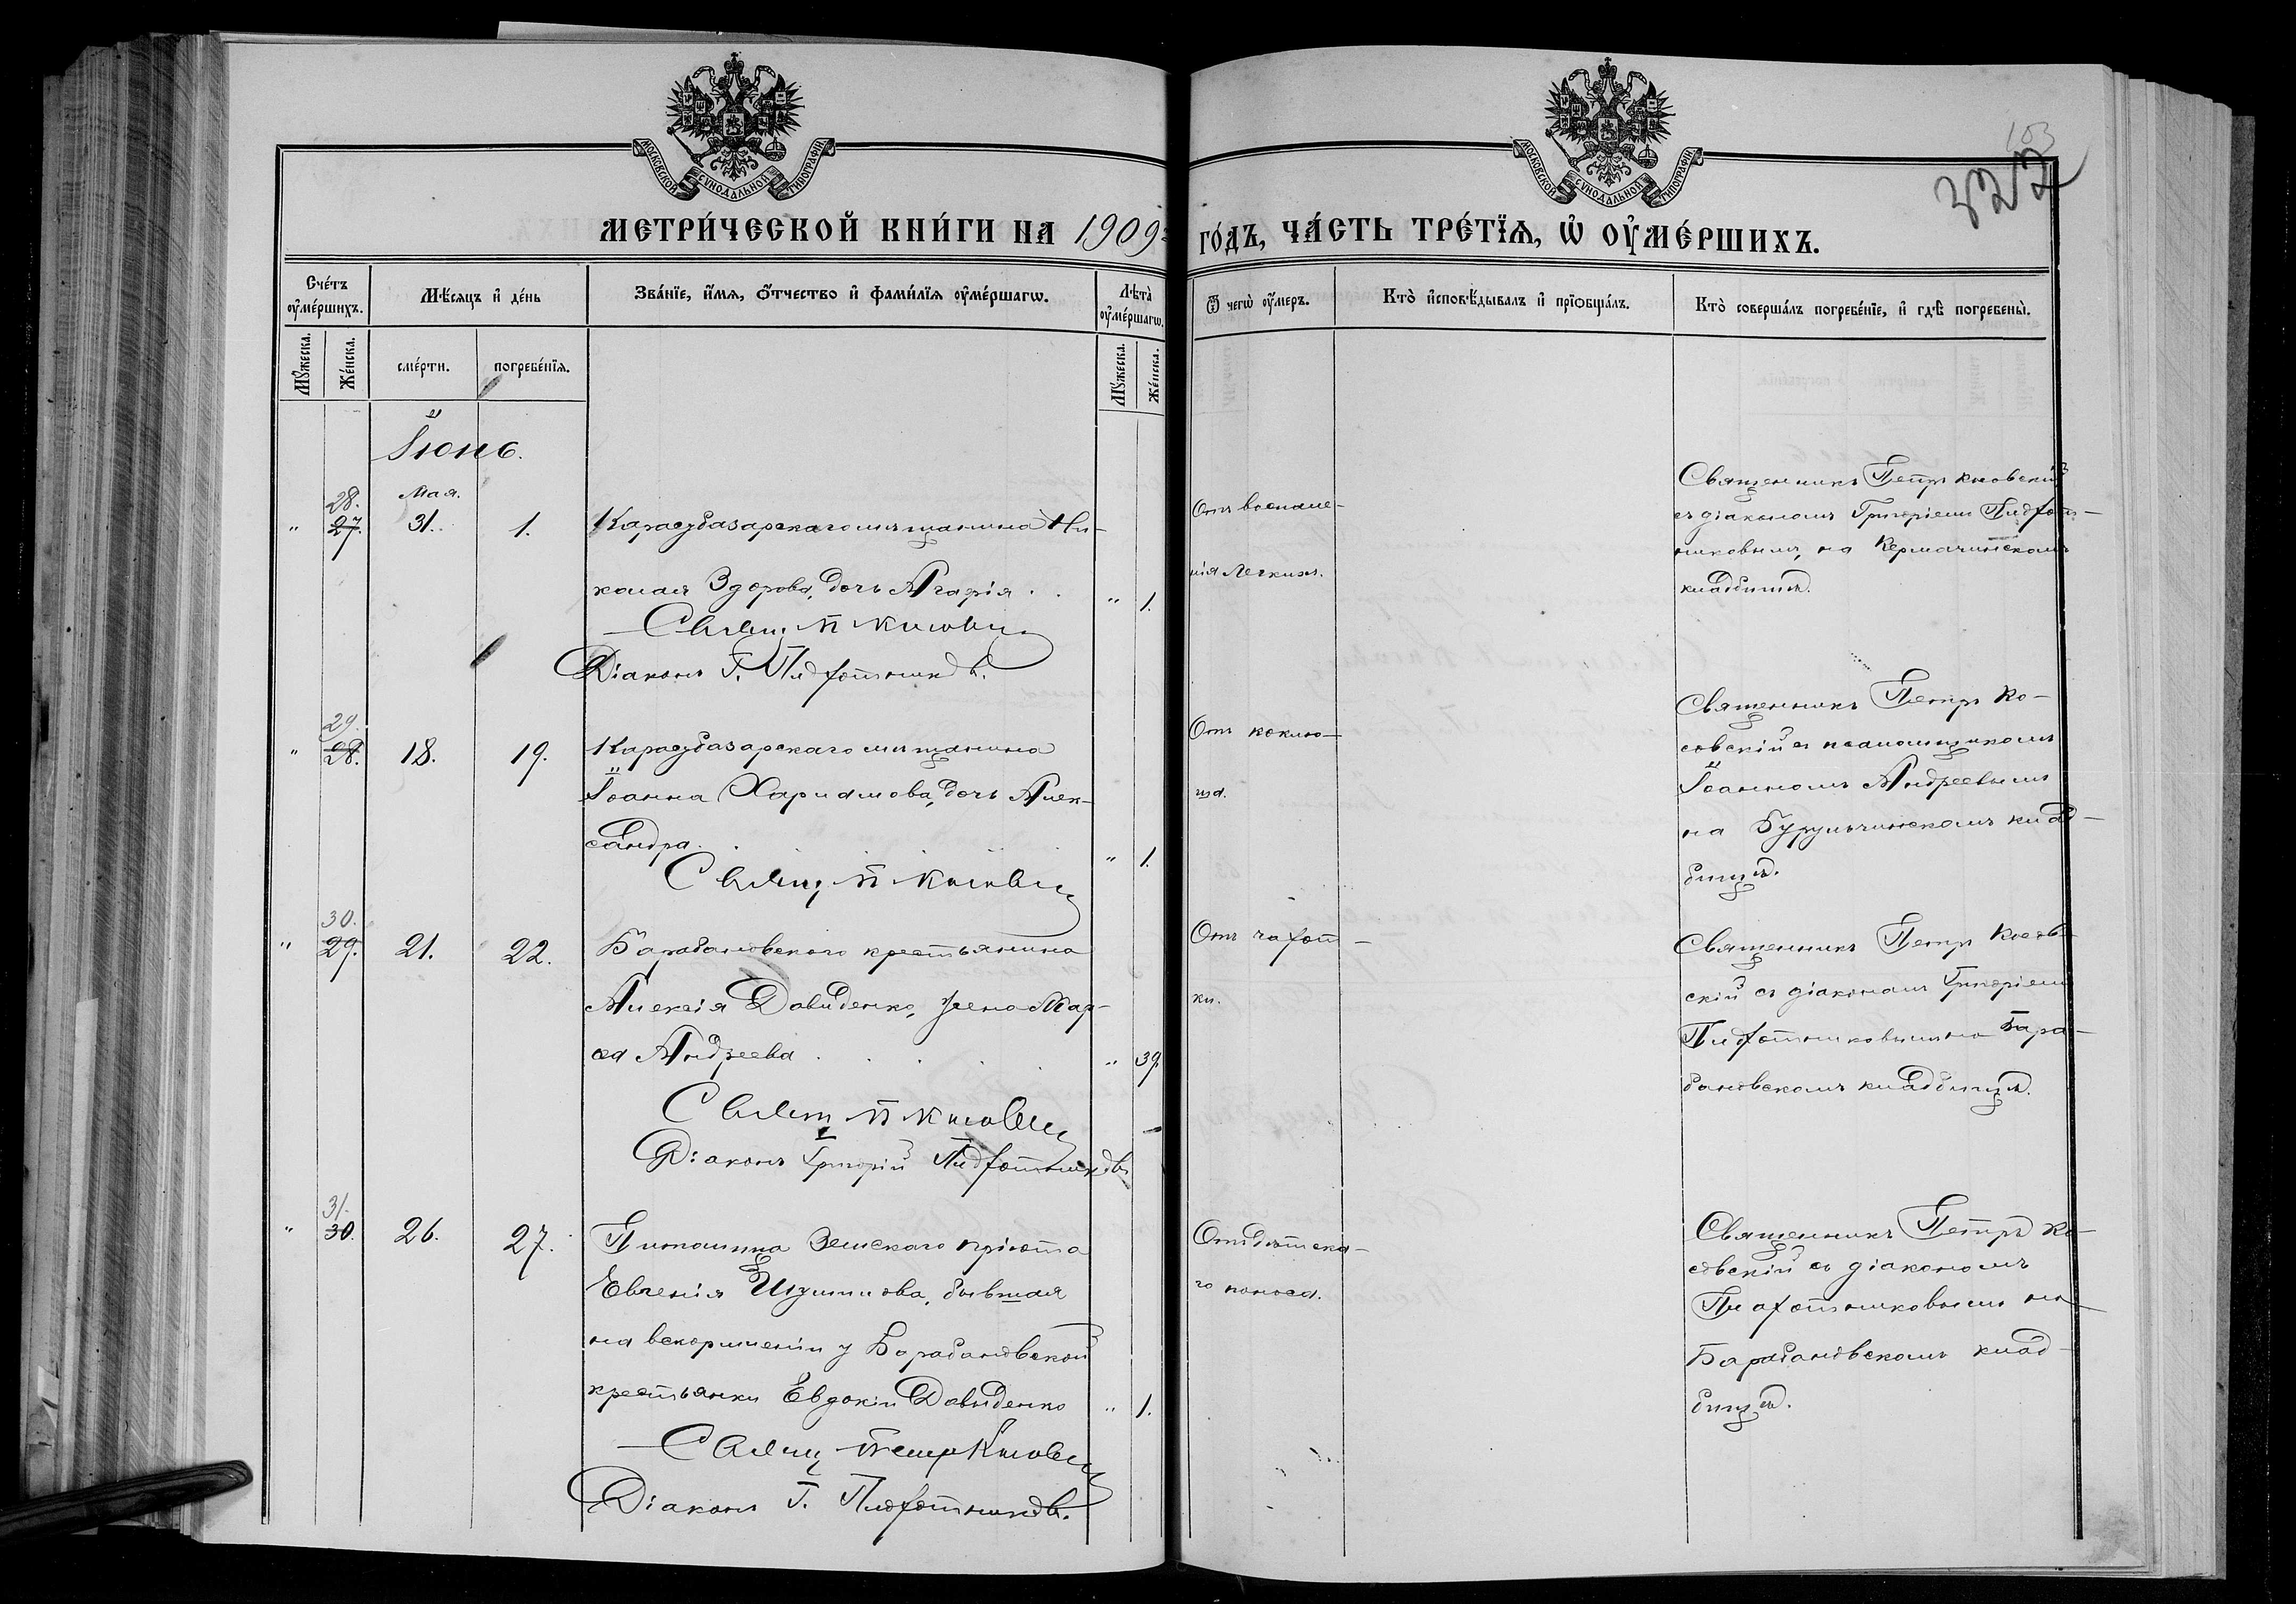 МОСКОВСКОЙ СѴНОДАЛЬНОЙ ТИПОГРАФІИ
МОСКОВСКОЙ СѴНОДАЛЬНОЙ ТИПОГРАФІИ
103
322
МЕТРИ́ЧЕСКОЙ КНИ́ГИ НА 1909 го́дъ, ЧА́СТЬ ТРЕ́ТЇѦ, Ѡ҆ ОУ҆МЕ́РШИХЪ.
Сче́тъ оу҆ме́ршихъ.
Мꙋ́жеска.
Же́нска.
Мѣ́сѧцъ и҆ де́нь
сме́рти.
погребе́нїѧ.
Зва́нїе, и҆́мѧ, ѻ҆́тчество и҆ фами́лїѧ оу҆ме́ршагѡ.
Лѣ̑та̀ оу҆ме́ршагѡ.
Мꙋ́жеска.
Же́нска.
Ѿ чегѡ̀ оу҆́меръ.
Кто̀ и҆сповѣ́дывалъ и҆ прїѻбща́лъ.
Кто̀ соверша́лъ погребе́нїе, и҆ гдѣ̀ погребены̀.
Іюнь.
Мая.
28.
" 27. 31. 1.
Карасубазарскаго мѣщанина Ни-
колая Здорова, дочь Агафія . . " 1.
Свящ. П Косовск
Діаконъ Г. Плахотниковъ.
Отъ воспале-
нія легкихъ.
Священникъ Петръ Косовскій
съ діакономъ Григоріемъ Плахот-
никовымъ, на Кермачинскомъ
кладбищѣ.
29.
" 28. 18. 19.
Карасубазарскаго мѣщанина
Іоанна Харламова, дочь Алек-
сандра. " 1.
Свящ. П Косовск
Отъ коклю-
ша.
Священникъ Петръ Ко-
совскій съ псаломщикомъ
Іоанномъ Андреевымъ
на Бурульчинскомъ клад-
бищѣ.
30.
" 29. 21. 22.
Барабановскаго крестьянина
Алексія Давиденко, жена Мар-
ѳа Андреева . . . . " 39
Свящ. П Косовск
Діаконъ Григорій Плахотниковъ
Отъ чахот-
ки.
Священникъ Петръ Косов-
скій съ діакономъ Григоріемъ
Плахотниковымъ на Бара-
бановскомъ кладбищѣ.
31.
" 30. 26. 27.
Питомица Земскаго пріюта
Евгенія Измаилова, бывшая
на вскормленіи у Барабановской
крестьянки Евдокіи Давиденко " 1.
Свящ. Петръ Косовск
Діаконъ Г. Плахотниковъ.
Отъ дѣтска-
го поноса.
Священникъ Петръ Ко-
совскій съ діакономъ
Плахотниковымъ на
Барабановскомъ клад-
бищѣ.